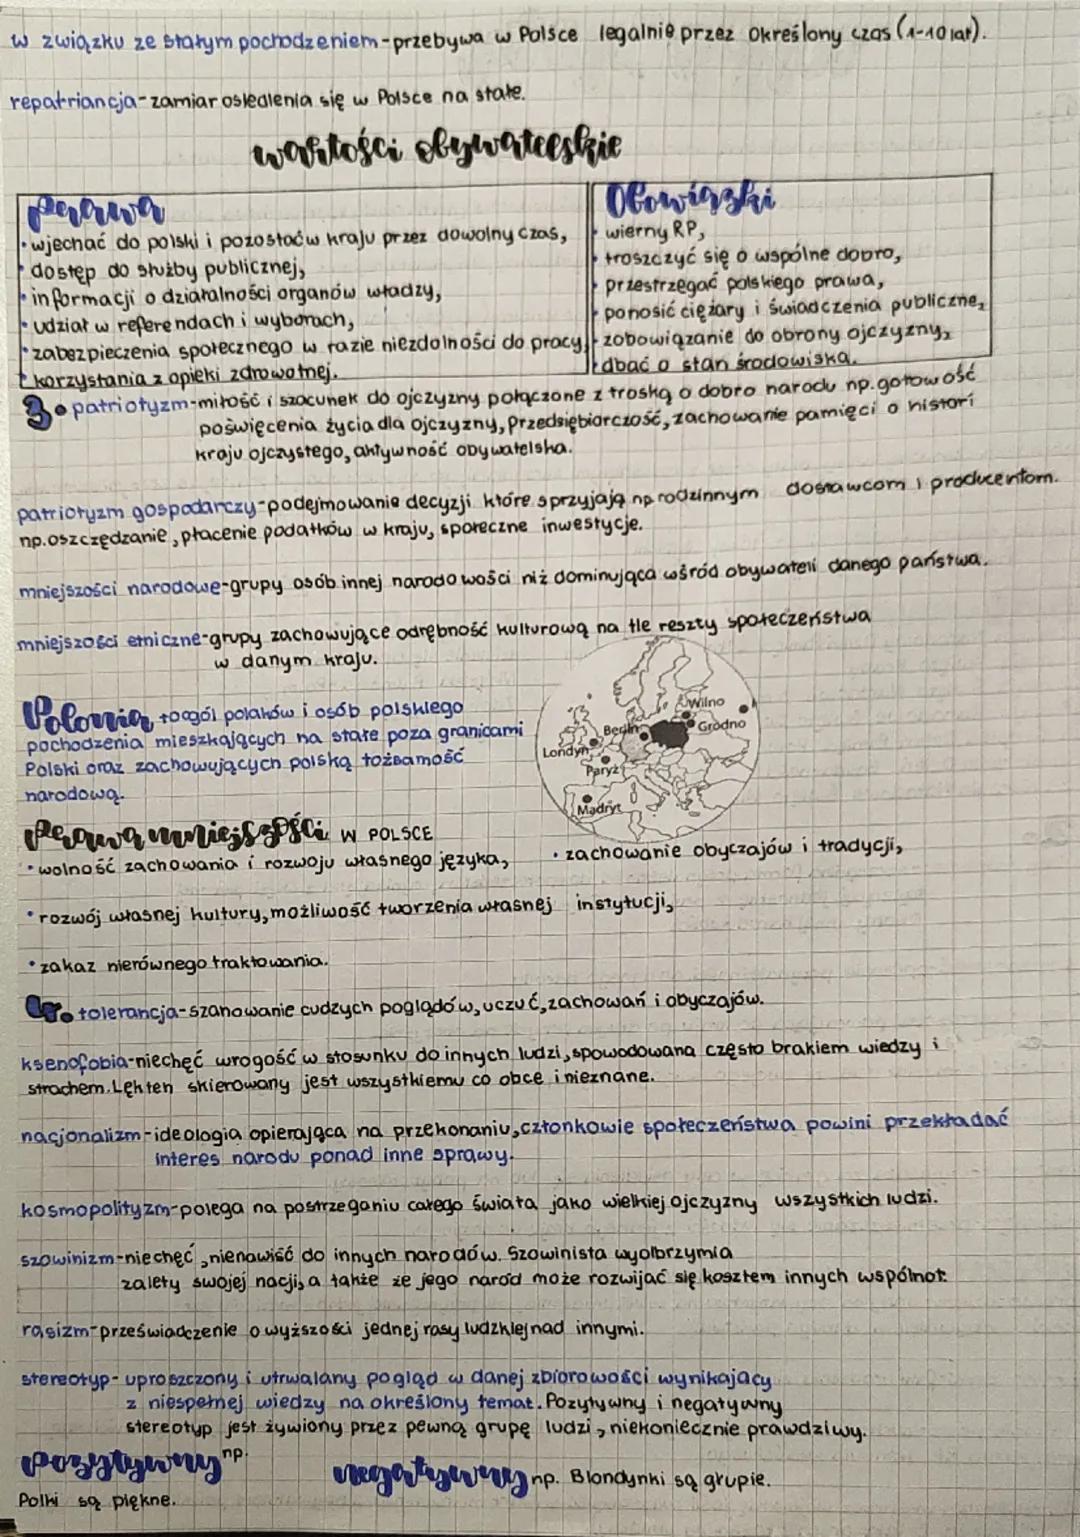 w związku ze stałym pochodzeniem-przebywa w Polsce legalnie przez określony czas (1-10 lat).
repatriancja-zamiar osiedlenia się w Polsce na stałe.
wartości obywatelskie
Prawa
• wjechać do polski i pozostać w kraju przez dowolny czas,
• dostęp do służby publicznej,
• informacji o działalności organów władzy,
• udział w referendach i wyborach,
• zabezpieczenia społecznego w razie niezdolności do pracy,
• korzystania z opieki zdrowotnej.
Obowiązki
• wierny RP,
• troszczyć się o wspólne dobro,
• przestrzegać polskiego prawa,
• ponosić ciężary i świadczenia publiczne,
• zobowiązanie do obrony ojczyzny,
• dbać o stan środowiska.
3. patriotyzm-miłość i szacunek do ojczyzny połączone z troską o dobro narodu np. gotowość
poświęcenia życia dla ojczyzny, Przedsiębiorczość, zachowanie pamięci o histori
kraju ojczystego, aktywność obywatelska.
patriotyzm gospodarczy-podejmowanie decyzji które sprzyjają np rodzinnym dostawcom i producentom.
np. oszczędzanie, płacenie podatków w kraju, społeczne inwestycje.
mniejszości narodowe-grupy osób innej narodowości niż dominująca wśród obywateli danego państwa.
mniejszości etniczne-grupy zachowujące odrębność kulturową na tle reszty społeczeństwa
w danym kraju.
Polonia to ogół polaków i osób polskiego
pochodzenia mieszkających na stałe poza granicami
Polski oraz zachowujących polską tożsamość
narodową.
Wilno
Grodno
Berlin
Londyn
Paryż
Madryt
Prawa mniejszości w POLSCE
• wolność zachowania i rozwoju własnego języka, • zachowanie obyczajów i tradycji,
• rozwój własnej kultury, możliwość tworzenia własnej instytucji,
• zakaz nierównego traktowania.
4. tolerancja-szanowanie cudzych poglądów, uczuć, zachowań i obyczajów.
ksenofobia-niechęć wrogość w stosunku do innych ludzi, spowodowana często brakiem wiedzy i
strachem. Lęk ten skierowany jest wszystkiemu co obce i nieznane.
nacjonalizm-ideologia opierająca na przekonaniu, członkowie społeczeństwa powini przekładać
interes narodu ponad inne sprawy.
kosmopolityzm-polega na postrzeganiu całego świata jako wielkiej ojczyzny wszystkich ludzi.
szowinizm-niechęć, nienawiść do innych narodów. Szowinista wyolbrzymia
zalety swojej nacji, a także że jego naród może rozwijać się kosztem innych wspólnot.
rasizm-przeświadczenie o wyższości jednej rasy ludzkiej nad innymi.
stereotyp-uproszczony i utrwalany pogląd w danej zbiorowości wynikający
z niespełnej wiedzy na określony temat. Pozytywny i negatywny
stereotyp jest żywiony przez pewną grupę ludzi, niekoniecznie prawdziwy.
pozytywny np.
Polki są piękne.
negatywny np. Blondynki są głupie.